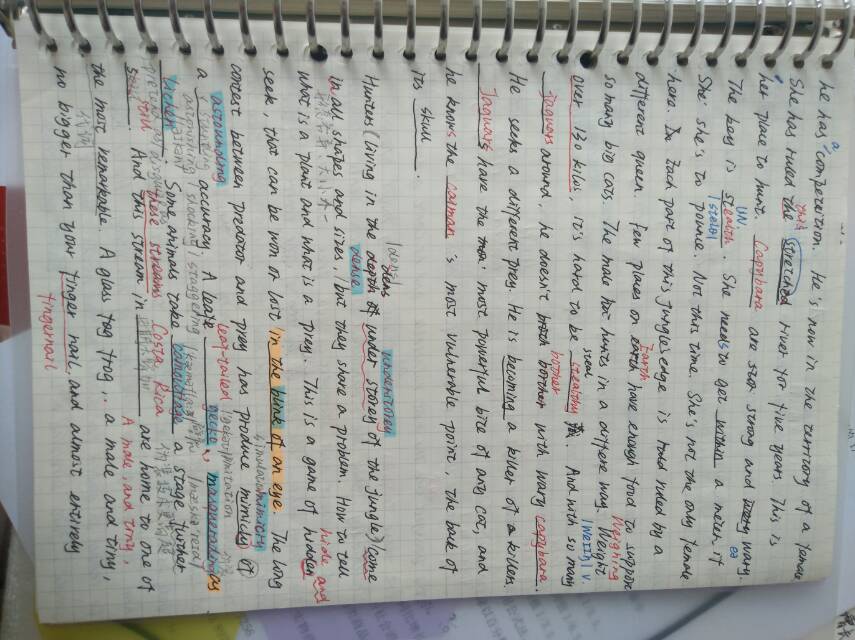 he has a competition. He's now in the territory of a female
She has ruled the this stretched river for five years. This is
her place to hunt. Capybara are strong and wary.
The key is stealth. She needs to get within a meter if
She's she's to pounce. Not this time. She's not the only female
here. In Each part of this jungle's edge is ruled by a
different queen. Few places on earth Earth have enough food to support
so many big cats. The male hunts in a different way. Weight Weighing
over 130 kilos, it's hard to be stealthy. And with so many
Jaguars around, he doesn't bother with wary capybara.
He seeks a different prey. He is becoming a killer of a killers
Jaguars have the most powerful bite of any cat, and
he knows the caiman's most vulnerable point, the back of
its skull.
Hunters (living in the dense understorey of the jungle) come
in all shapes and sizes, but they share a problem. How to tell
what is a plant and what is a prey. This is a game of hidden hide and
seek, that can be won or lost in the blink of an eye. The long
contest between predator and prey has produce mimicry of
astounding
a accuracy A leaf-tailed gecko, masquerading as
lichen Some animals take camouflage a stage further
still. And this stream in these streams Costa Rica are home to one of
the most remarkable. A glass frog.. a male and tiny, A male, and tiny,
no bigger than your finger nail, and almost entirely
fingernail